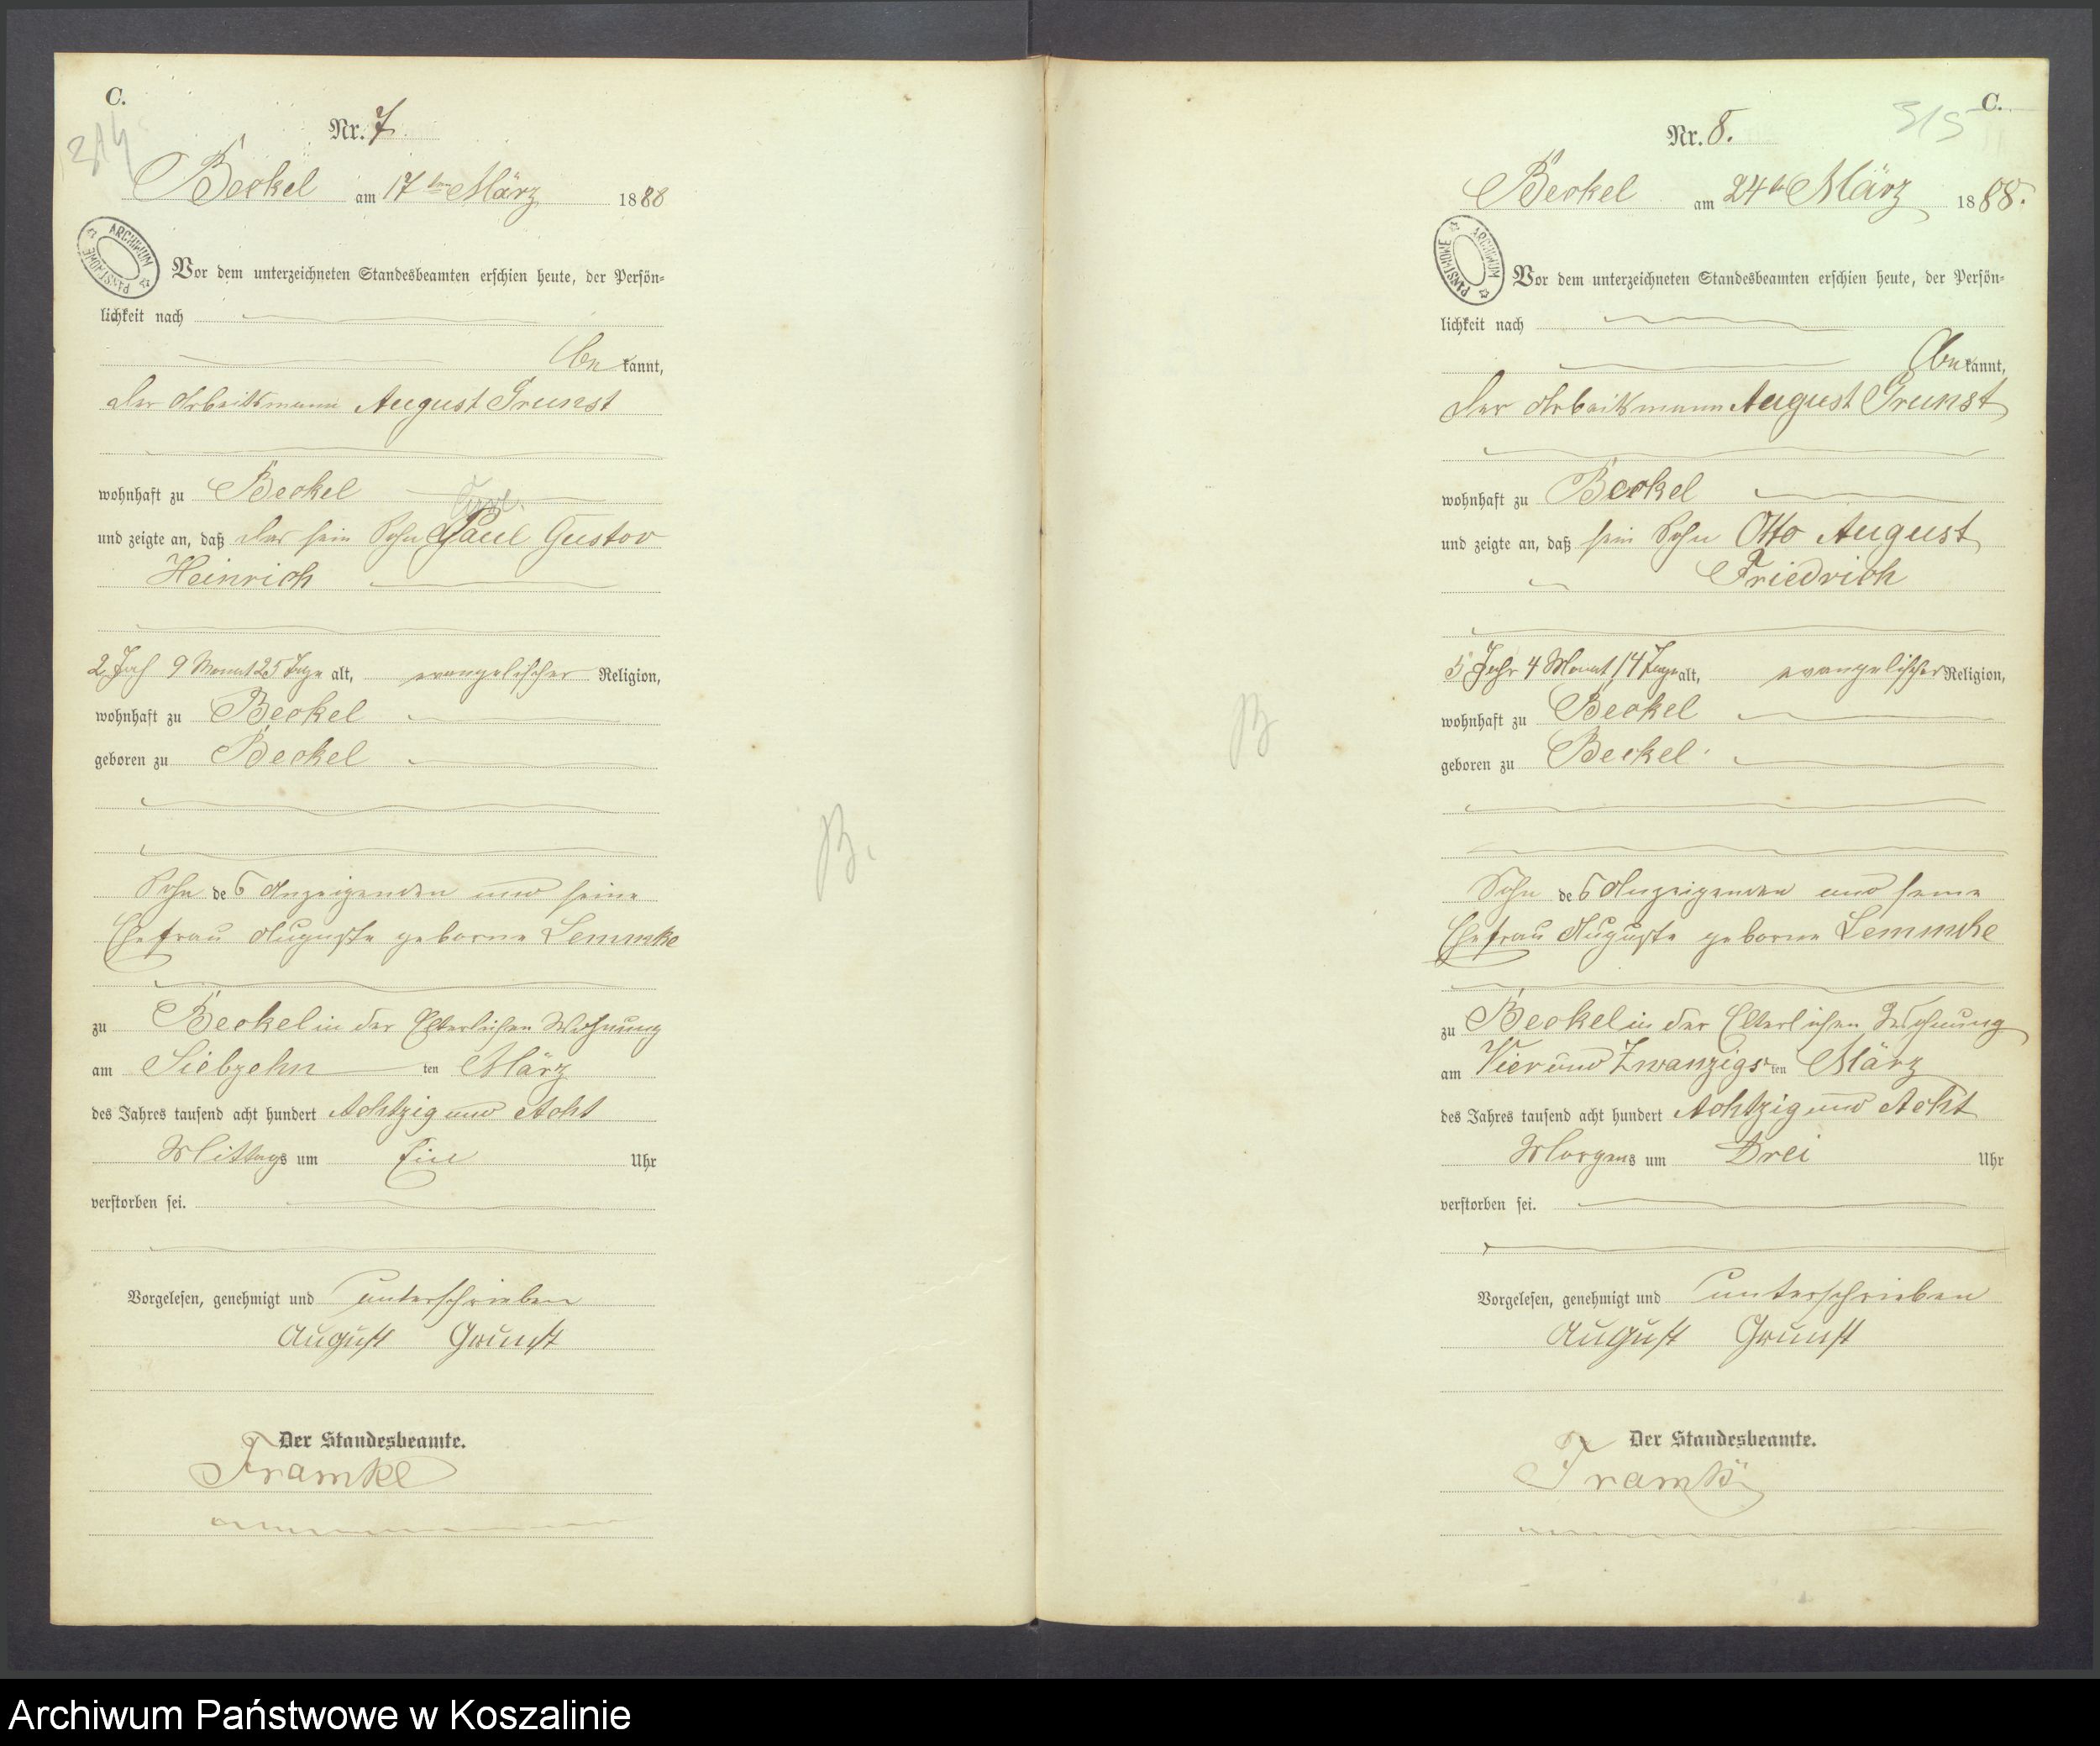 C.
314
Nr. 7
Beckel am 17ten März 1888
ARCHIWUM PAŃSTWOWE
Vor dem unterzeichneten Standesbeamten erschien heute, der Persön=
lichkeit nach
be kannt,
der Arbeitsmann August Grunst
wohnhaft zu Beckel
und zeigte an, daß der sein Sohn Paul Gustav
Heinrich
2 Jah 9 Monat 25 Tage alt, evangelischer Religion,
wohnhaft zu Beckel
geboren zu Beckel
B.
Sohn des Anzeigenden und seine
Ehefrau Auguste geborne Lemmke
zu Beckel in der Elterlichen Wohnung
am Siebzehn ten März
des Jahres tausend acht hundert Achtzig und Acht
Mittags um Uhr
verstorben sei.
Vorgelesen, genehmigt und unterschrieben
August Grunst
Der Standesbeamte.
Framke
C.
315
Nr. 8.
Beckel am 24te März 1888.
ARCHIWUM PAŃSTWOWE
Vor dem unterzeichneten Standesbeamten erschien heute, der Persön=
lichkeit nach
be kannt,
der Arbeitsmann August Grunst
wohnhaft zu Beckel
und zeigte an, daß sein Sohn Otto August
Friedrich
5 Jahr 4 Monat 14 Tage alt, evangelischer Religion,
B
wohnhaft zu Beckel
geboren zu Beckel
Sohn des Anzeigenden und seine
Ehefrau Auguste geborne Lemmke
zu Beckel in der Elterlichen Wohnung
am Vier und Zwanzigs ten März
des Jahres tausend acht hundert Achtzig und Acht
Morgens um Drei Uhr
verstorben sei.
Vorgelesen, genehmigt und unterschrieben
August Grunst
Der Standesbeamte.
Framke
Archiwum Państwowe w Koszalinie